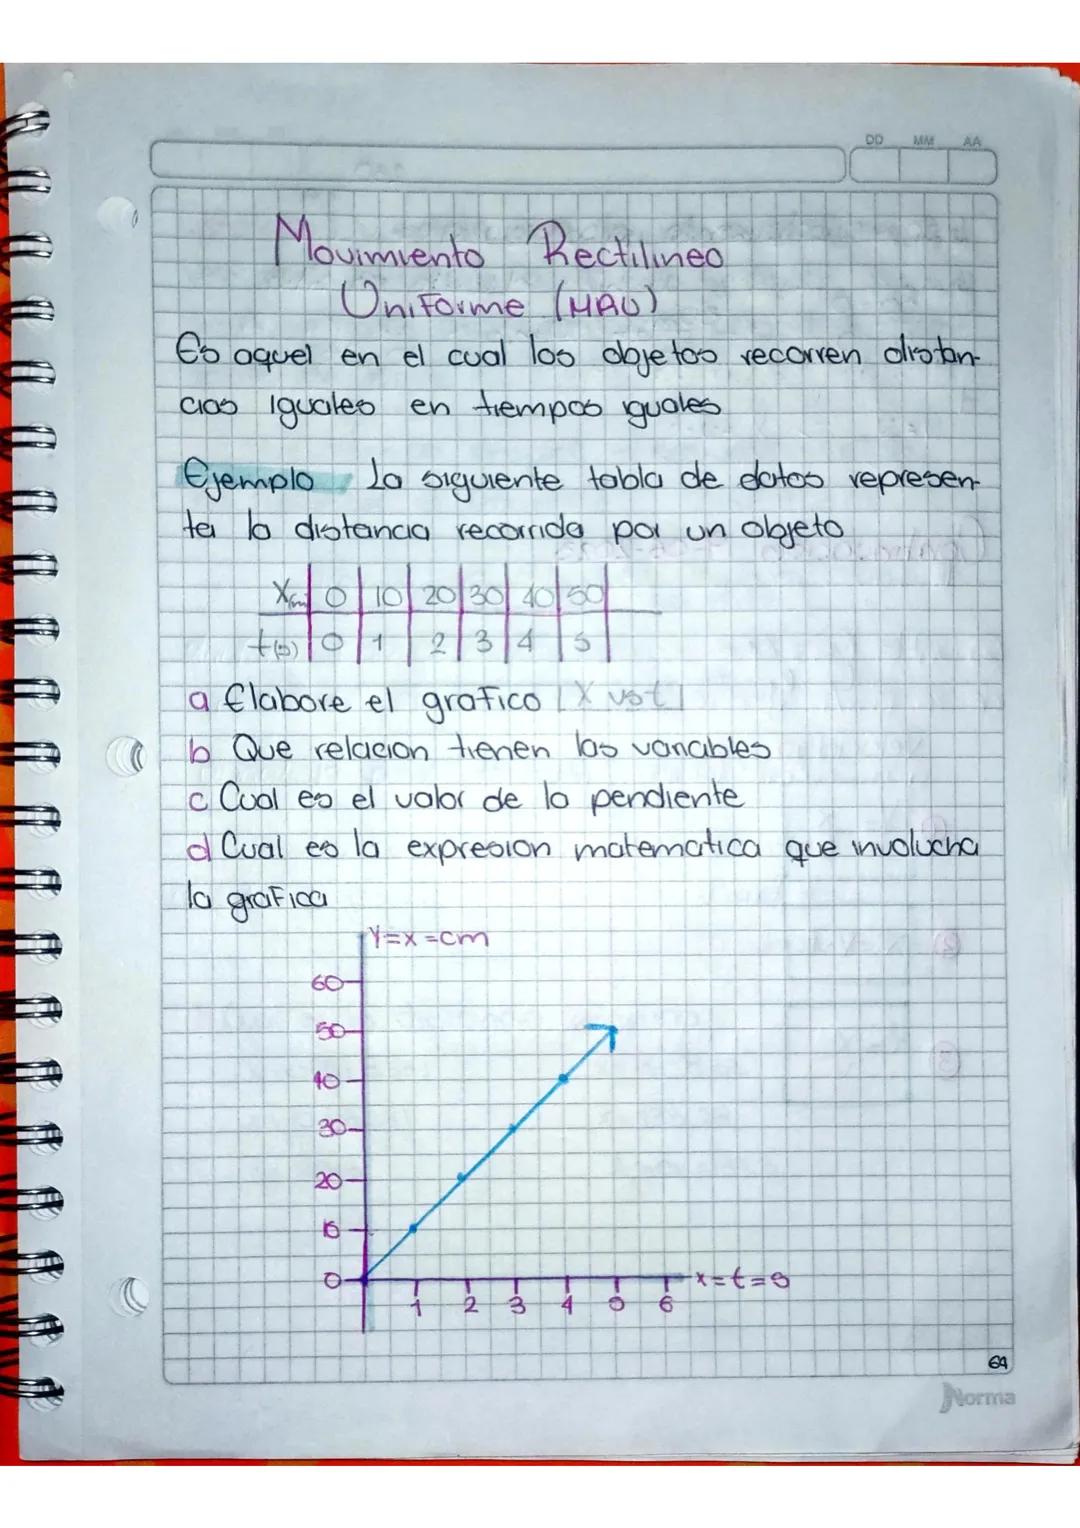 DD MM AA
Movimiento Rectilineo
Uniforme (MRU)
Es aquel en el cual los objetos recorren distan-
cias iguales en tiempos iguales
Ejemplo La siguiente tabla de datos represen-
ta la distancia recorrida por un objeto
X(m) 0 10 20 30 40 50
t(s) 0 1 2 3 4 5
a Elabore el grafico [X vs t]
b Que relacion tienen las variables
c Cual es el valor de la pendiente
d Cual es la expresion matematica que involucra
la grafica
Y=x=cm
60
50
40
30
20
10
0
x=t=s
1 2 3 4 5 6
64
Norma